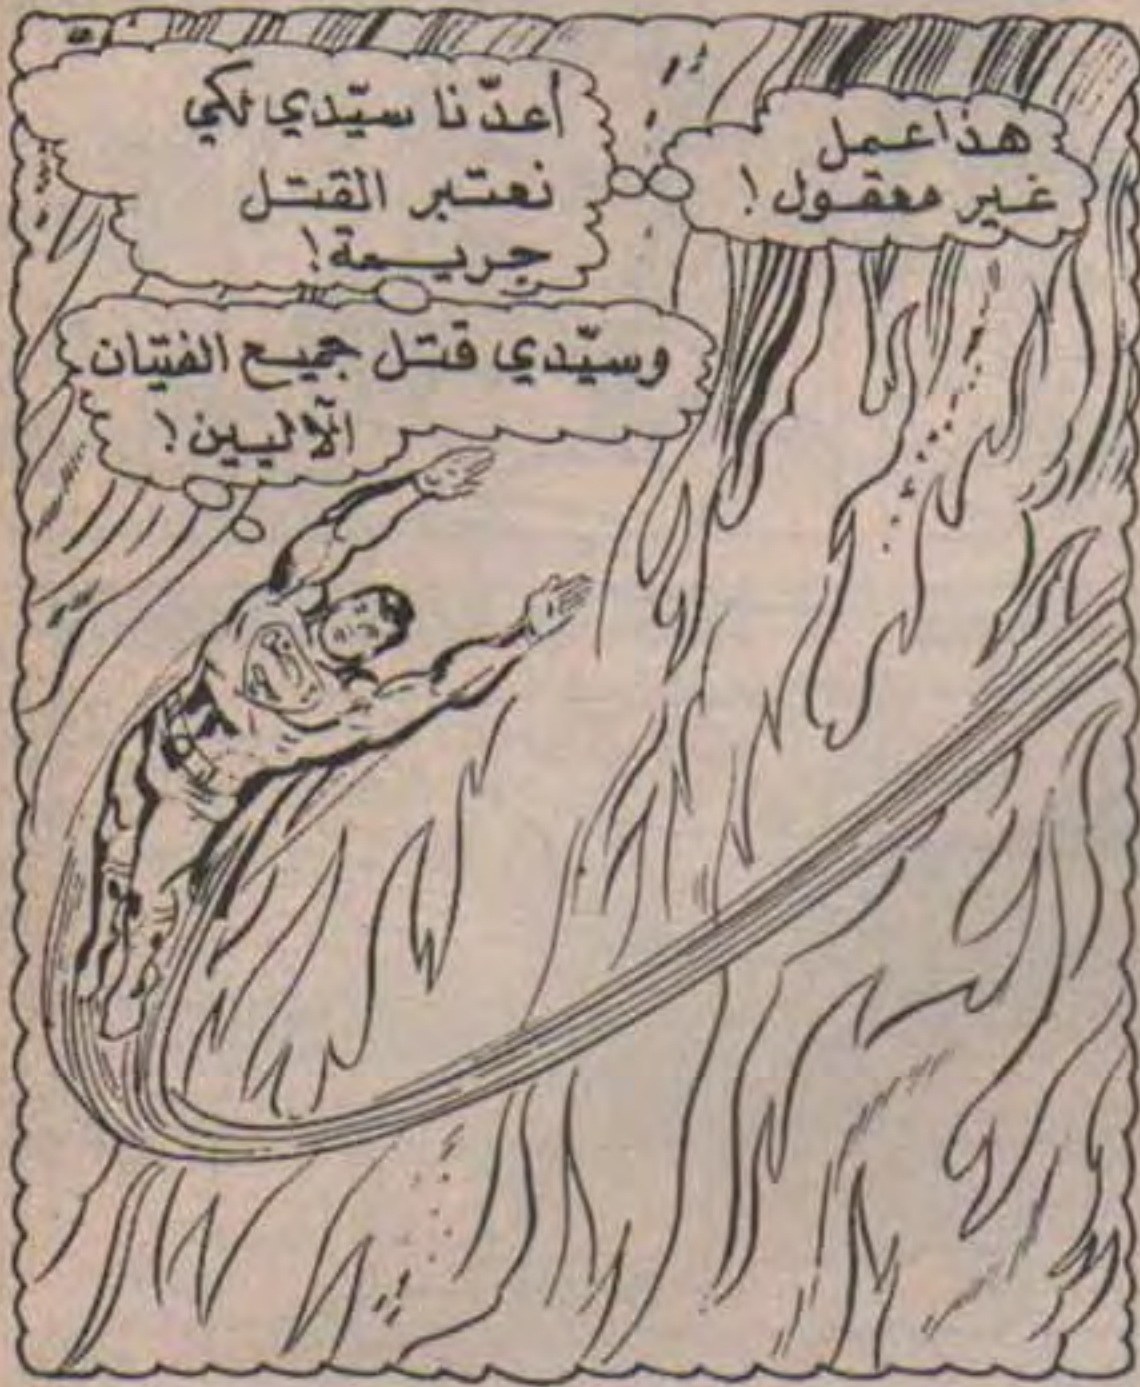 هذا عمل
غير معقول!
أعدّنا سيّدي لكي
نعتبر القتل
جريمة!
وسيّدي قتل جميع الفتيان
الآليين!